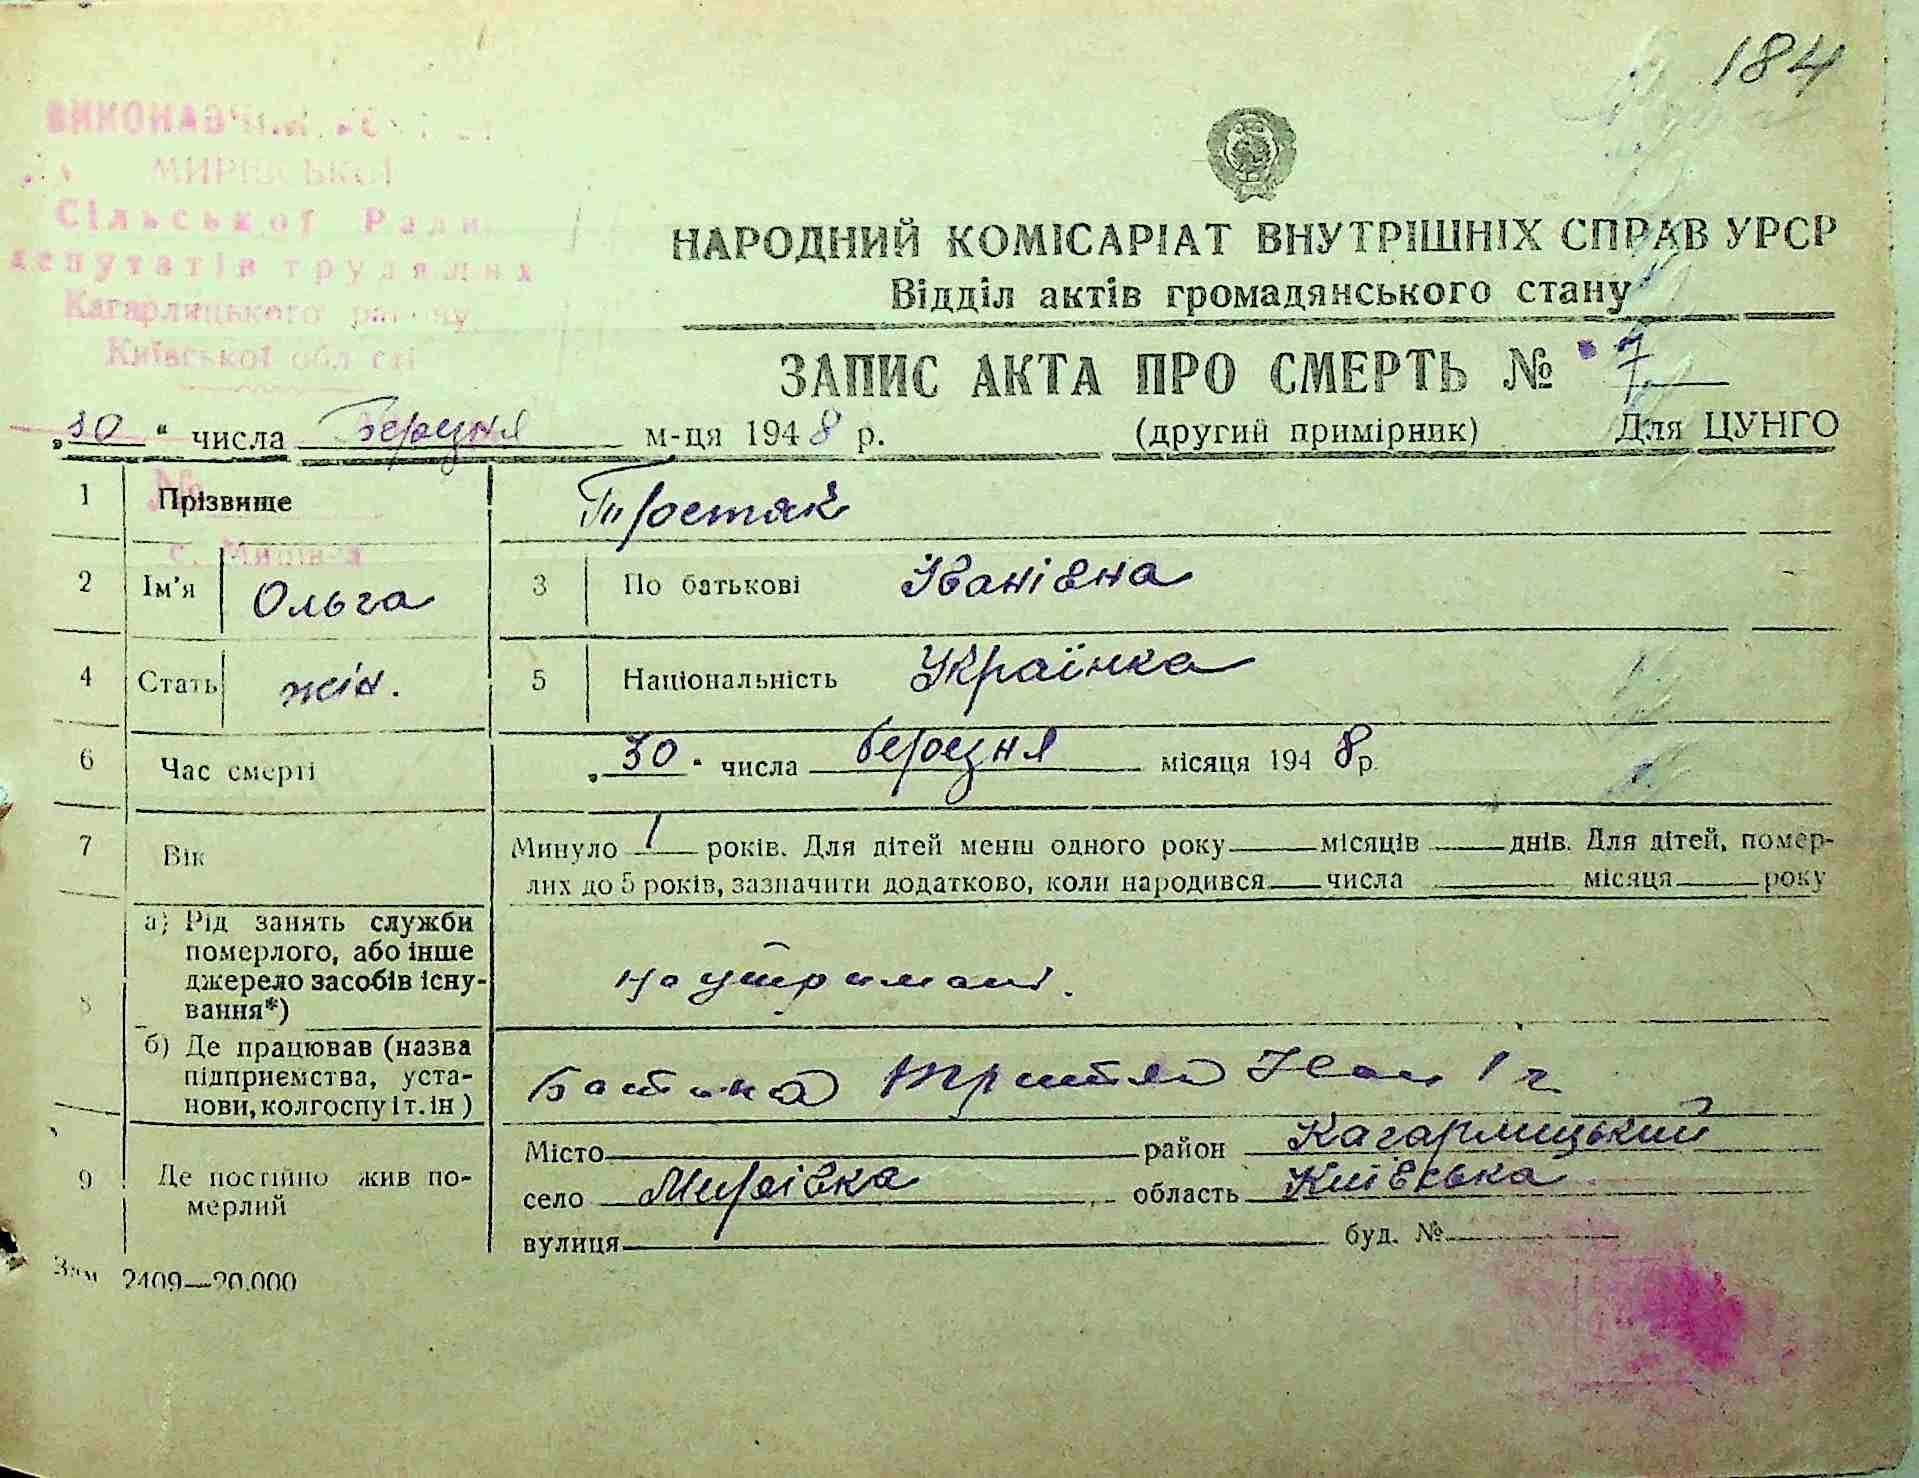 184
ВИКОНАВЧИЙ
МИРІВСЬКОЇ
Сільської Ради
депутатів трудящих
Кагарлицького району
Київської області
НАРОДНИЙ КОМІСАРІАТ ВНУТРІШНІХ СПРАВ УРСР
Відділ актів громадянського стану
ЗАПИС АКТА ПРО СМЕРТЬ № 7
„30" числа Березня м-ця 1948 р. (другий примірник) Для ЦУНГО
№
1 Прізвище Простяк
с. Мирівка
2 Ім'я Ольга 3 По батькові Іванівна
4 Стать жін. 5 Національність Українка
6 Час смерті „30" числа березня місяця 1948 р.
7 Вік Минуло 1 років. Для дітей менш одного року — місяців — днів. Для дітей, помер-
лих до 5 років, зазначити додатково, коли народився — числа — місяця — року
8 а) Рід занять служби померлого, або інше джерело засобів існування*) на утримані.
б) Де працював (назва підприємства, установи, колгоспу і т. ін) батька
9 Де постійно жив померлий
Місто — район Кагарлицький
село Мирівка область Київська
вулиця — буд. №
Зам 2409—20.000